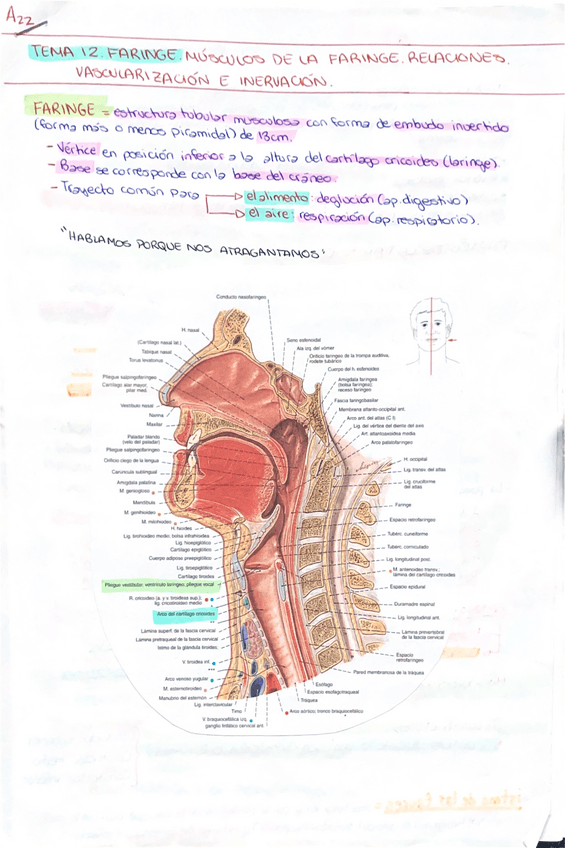 A22
TEMA 12. FARINGE. MÚSCULOS DE LA FARINGE. RELACIONES.
VASCULARIZACIÓN E INERVACIÓN.
FARINGE = estructura tubular musculosa con forma de embudo invertido
(forma más o menos piramidal) de 13cm.
- Vértice en posición inferior a la altura del cartílago cricoides (laringe).
- Base se corresponde con la base del cráneo.
- Trayecto común para
el alimento: deglución (ap. digestivo)
el aire: respiración (ap. respiratorio).
"HABLAMOS PORQUE NOS ATRAGANTAMOS"
Conducto nasofaríngeo
H. nasal
(Cartílago nasal lat.)
Tabique nasal
Torus levatorius
Pliegue salpingofaríngeo
Cartílago alar mayor,
pilar med.
Vestíbulo nasal
Maxilar
Paladar blando
(velo del paladar)
Pliegue salpingofaríngeo
Orificio ciego de la lengua
Carúncula sublingual
Amígdala palatina
M. geniogloso
Mandíbula
M. genihioideo
M. milohioideo
H. hioides
Lig. tirohioideo medio; bolsa infrahioidea
Lig. hioepiglótico
Cartílago epiglótico
Cuerpo adiposo preepiglótico
Lig. tiroepiglótico
Cartílago tiroides
Pliegue vestibular, ventrículo laríngeo; pliegue vocal
R. cricoideo (a. y v. tiroideas sup.);
lig. cricotiroideo medio
Arco del cartílago cricoides
Lámina superf. de la fascia cervical
Lámina pretraqueal de la fascia cervical
Istmo de la glándula tiroides;
V. tiroidea inf.
Arco venoso yugular
M. esternotiroideo
Manubrio del esternón
Lig. interclavicular
Timo
V. braquiocefálica izq.
ganglio linfático cervical ant.
Seno esfenoidal
Ala izq. del vómer
Orificio faríngeo de la trompa auditiva,
rodete tubárico
Cuerpo del h. esfenoides
Amígdala faríngea
(bolsa faríngea);
receso faríngeo
Fascia faringobasilar
Membrana atlanto-occipital ant.
Arco ant. del atlas (C I)
Lig. del vértice del diente del axis
Art. atlantoaxoidea media
Arco palatofaríngeo
H. occipital
Lig. transv. del atlas
Lig. cruciforme
del atlas
Faringe
Espacio retrofaríngeo
Tubérc. cuneiforme
Tubérc. corniculado
Lig. longitudinal post.
M. aritenoideo transv.;
lámina del cartílago cricoides
Espacio epidural
Duramadre espinal
Lig. longitudinal ant.
Lámina prevertebral
de la fascia cervical
Espacio
retrofaríngeo
Pared membranosa de la tráquea
Esófago
Espacio esofagotraqueal
Tráquea
Arco aórtico; tronco braquiocefálico